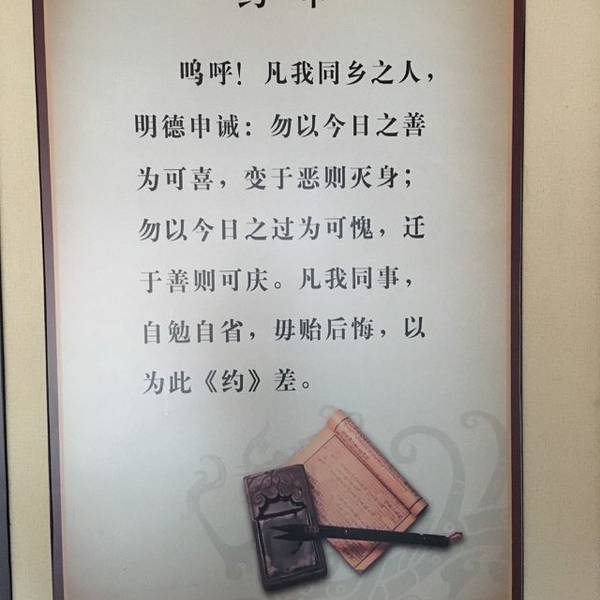 呜呼！凡我同乡之人，
明德申诫：勿以今日之善
为可喜，变于恶则灭身；
勿以今日之过为可愧，迁
于善则可庆。凡我同事，
自勉自省，毋贻后悔，以
为此《约》差。